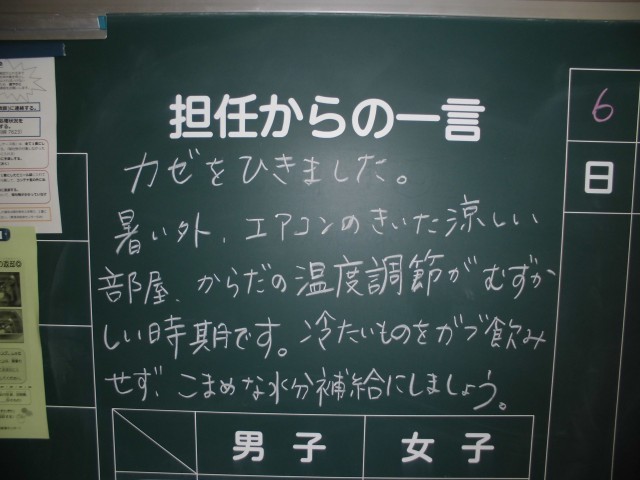 担任からの一言
カゼをひきました。
暑い外、エアコンのきいた涼しい
部屋、からだの温度調節がむずか
しい時期です。冷たいものをガブ飲み
せず、こまめな水分補給にしましょう。
6
日
男子
女子